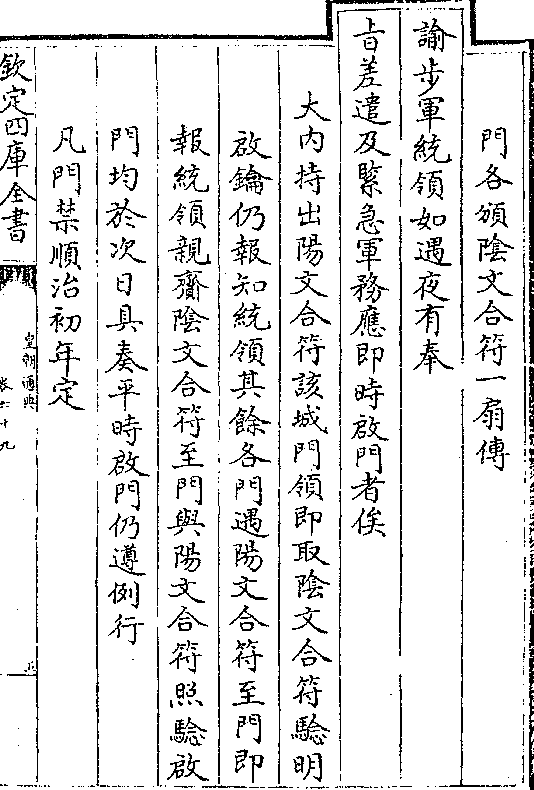 門各頒陰文合符一扇傳
諭步軍統領如遇夜有奉
㫖差遣及緊急軍務應即時啟門者俟
大内持出陽文合符該城門領即取陰文合符驗明
啟鑰仍報知統領其餘各門遇陽文合符至門即
報統領親齎陰文合符至門與陽文合符照驗啟
門均於次日具奏平時啟門仍遵例行
凡門禁順治初年定
欽定四庫全書
皇朝通典